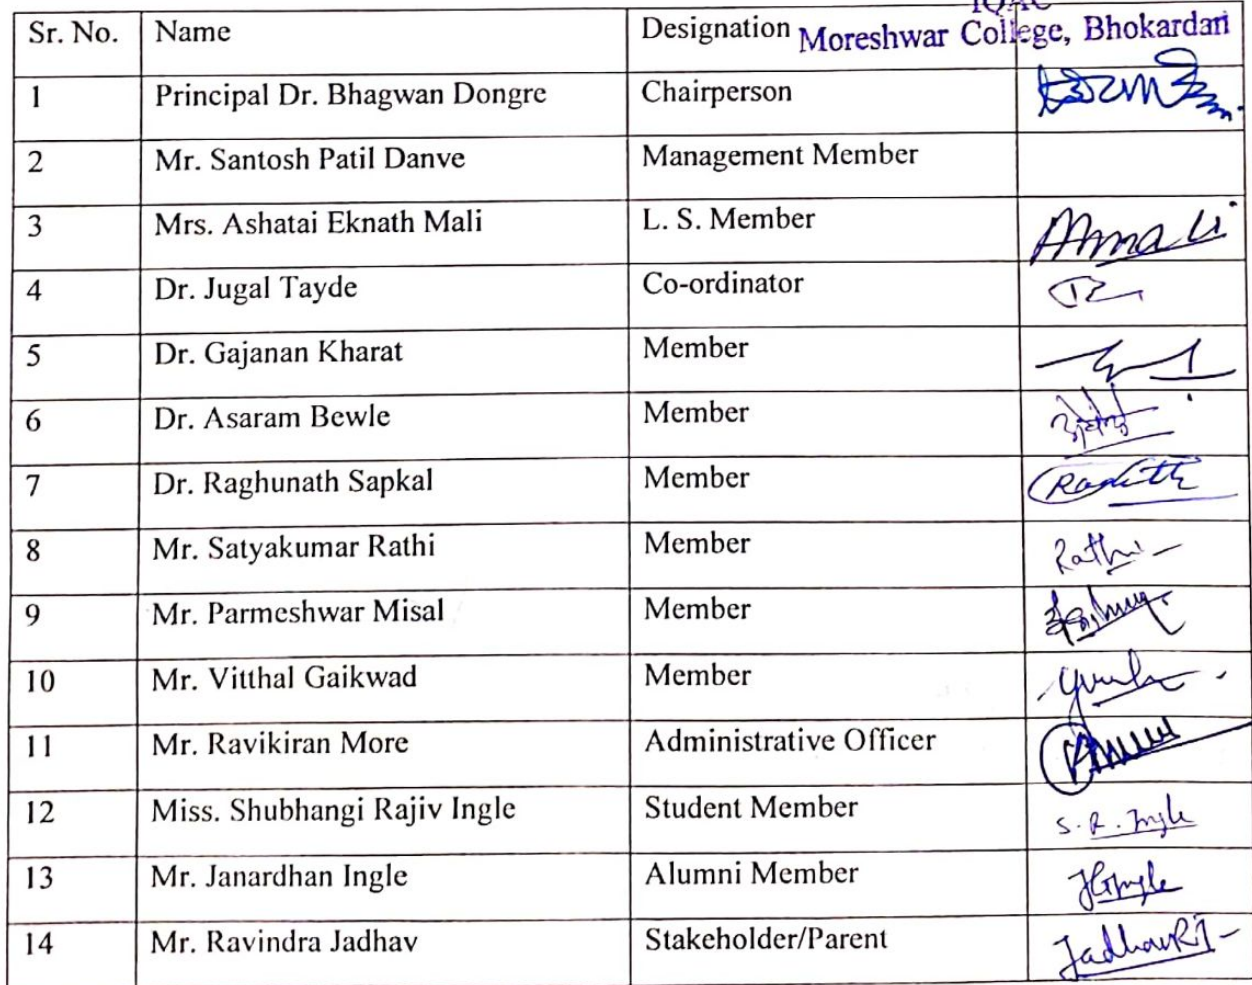 IQAC
Sr. No. Name Designation Moreshwar College, Bhokardan
1 Principal Dr. Bhagwan Dongre Chairperson
2 Mr. Santosh Patil Danve Management Member
3 Mrs. Ashatai Eknath Mali L. S. Member
4 Dr. Jugal Tayde Co-ordinator
5 Dr. Gajanan Kharat Member
6 Dr. Asaram Bewle Member
7 Dr. Raghunath Sapkal Member
8 Mr. Satyakumar Rathi Member Rathi
9 Mr. Parmeshwar Misal Member
10 Mr. Vitthal Gaikwad Member
11 Mr. Ravikiran More Administrative Officer
12 Miss. Shubhangi Rajiv Ingle Student Member S. R. Ingle
13 Mr. Janardhan Ingle Alumni Member
14 Mr. Ravindra Jadhav Stakeholder/Parent JadhavRJ